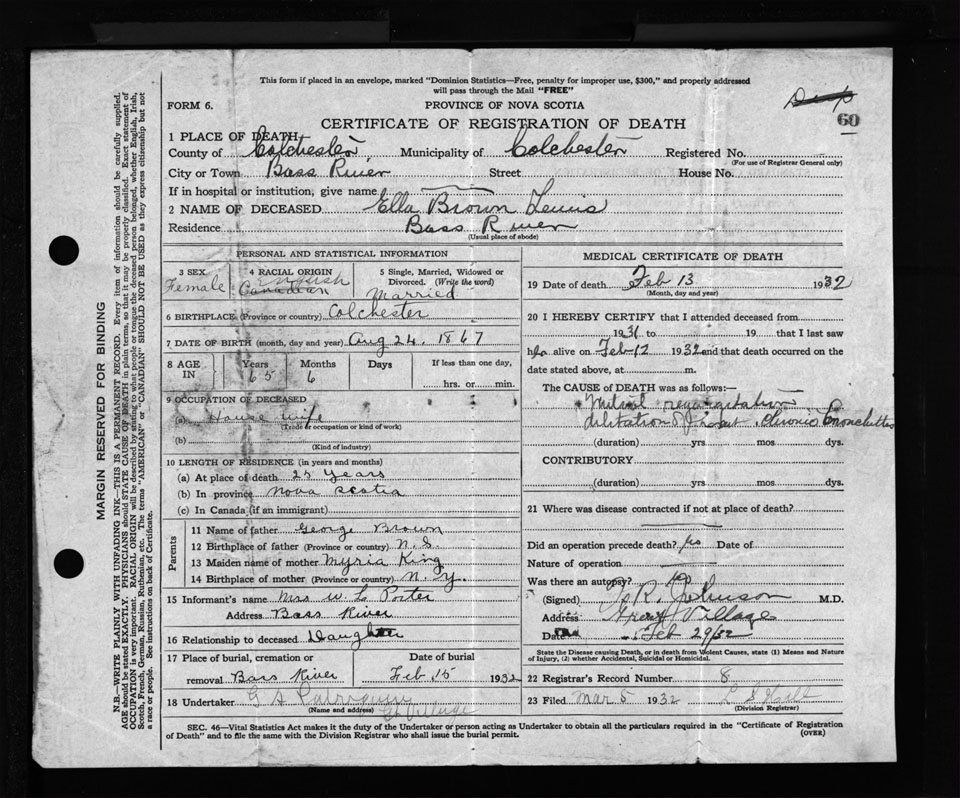 This form if placed in an envelope, marked "Dominion Statistics—Free, penalty for improper use, $300," and properly addressed
will pass through the Mail "FREE"
FORM 6. PROVINCE OF NOVA SCOTIA
60
CERTIFICATE OF REGISTRATION OF DEATH
1 PLACE OF DEATH
County of Colchester, Municipality of Colchester Registered No.
(For use of Registrar General only)
City or Town Bass River Street House No.
If in hospital or institution, give name
2 NAME OF DECEASED Ella Brown Lewis
Residence Bass River
(Usual place of abode)
PERSONAL AND STATISTICAL INFORMATION
3 SEX 4 RACIAL ORIGIN 5 Single, Married, Widowed or
Divorced. (Write the word)
Female English Canadian Married
6 BIRTHPLACE (Province or country) Colchester
7 DATE OF BIRTH (month, day and year) Aug 24, 1867
8 AGE IN Years Months Days If less than one day,
65 6 hrs. or min.
9 OCCUPATION OF DECEASED
(a) House wife
(Trade or occupation or kind of work)
(b)
(Kind of industry)
10 LENGTH OF RESIDENCE (in years and months)
(a) At place of death 25 years
(b) In province Nova Scotia
(c) In Canada (if an immigrant)
Parents
11 Name of father George Brown
12 Birthplace of father (Province or country) N.S.
13 Maiden name of mother Myria King
14 Birthplace of mother (Province or country) N.Y.
15 Informant's name Mrs W L Porter
Address Bass River
16 Relationship to deceased Daughter
17 Place of burial, cremation or Date of burial
removal Bass River Feb 15 1932
18 Undertaker Gt Village
(Name and address)
MEDICAL CERTIFICATE OF DEATH
19 Date of death Feb 13 1932
(Month, day and year)
20 I HEREBY CERTIFY that I attended deceased from
1931 to 19 that I last saw
h alive on Feb 12 1932 and that death occurred on the
date stated above, at m.
The CAUSE OF DEATH was as follows:
Mitral regurgitation
dilitation of heart, chronic bronchittis
(duration) yrs mos dys.
CONTRIBUTORY
(duration) yrs mos dys.
21 Where was disease contracted if not at place of death?
Did an operation precede death? No Date of
Nature of operation
Was there an autopsy? No
(Signed) R. Johnson M.D.
Address Great Village
Date Feb 29/32
State the Disease causing Death, or in death from Violent Causes, state (1) Means and Nature
of Injury, (2) whether Accidental, Suicidal or Homicidal.
22 Registrar's Record Number 8
23 Filed Mar 5 1932
(Division Registrar)
SEC. 46—Vital Statistics Act makes it the duty of the Undertaker or person acting as Undertaker to obtain all the particulars required in the "Certificate of Registration
of Death" and to file the same with the Division Registrar who shall issue the burial permit.
(OVER)
MARGIN RESERVED FOR BINDING
N.B.—WRITE PLAINLY WITH UNFADING INK—THIS IS A PERMANENT RECORD. Every item of information should be carefully supplied.
AGE should be stated EXACTLY. PHYSICIANS should STATE CAUSE OF DEATH in plain terms, so that it may be properly classified. Exact statement of
OCCUPATION is very important. RACIAL ORIGIN will be described by stating to what people or tongue the deceased person belonged, whether English, Irish,
Scotch, French, German, Russian, Ruthenian, etc. The terms "AMERICAN" or "CANADIAN" SHOULD NOT BE USED as they express citizenship but not
a race or people. See instructions on back of Certificate.